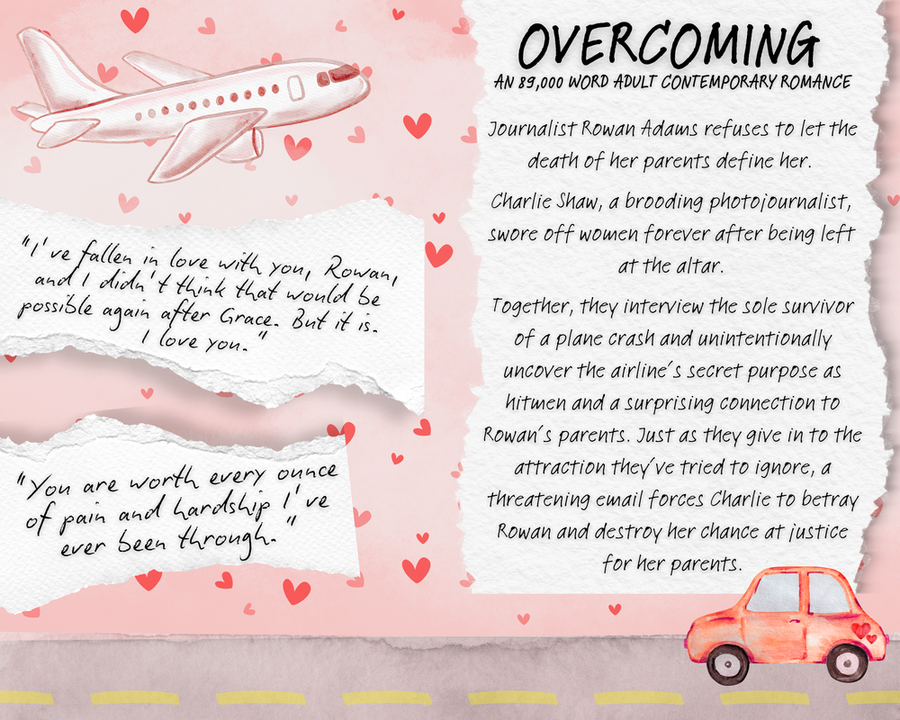 OVERCOMING
AN 89,000 WORD ADULT CONTEMPORARY ROMANCE
Journalist Rowan Adams refuses to let the
death of her parents define her.
Charlie Shaw, a brooding photojournalist,
swore off women forever after being left
at the altar.
Together, they interview the sole survivor
of a plane crash and unintentionally
uncover the airline's secret purpose as
hitmen and a surprising connection to
Rowan's parents. Just as they give in to the
attraction they've tried to ignore, a
threatening email forces Charlie to betray
Rowan and destroy her chance at justice
for her parents.
"I've fallen in love with you, Rowan,
and I didn't think that would be
possible again after Grace. But it is.
I love you."
"You are worth every ounce
of pain and hardship I've
ever been through."